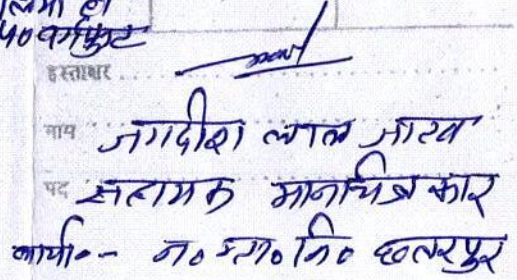 ५० वर्गफुट
हस्ताक्षर
नाम जगदीश लाल जाटव
पद सहायक मानचित्रकार
कार्या०- न० ग्रा० नि० छतरपुर